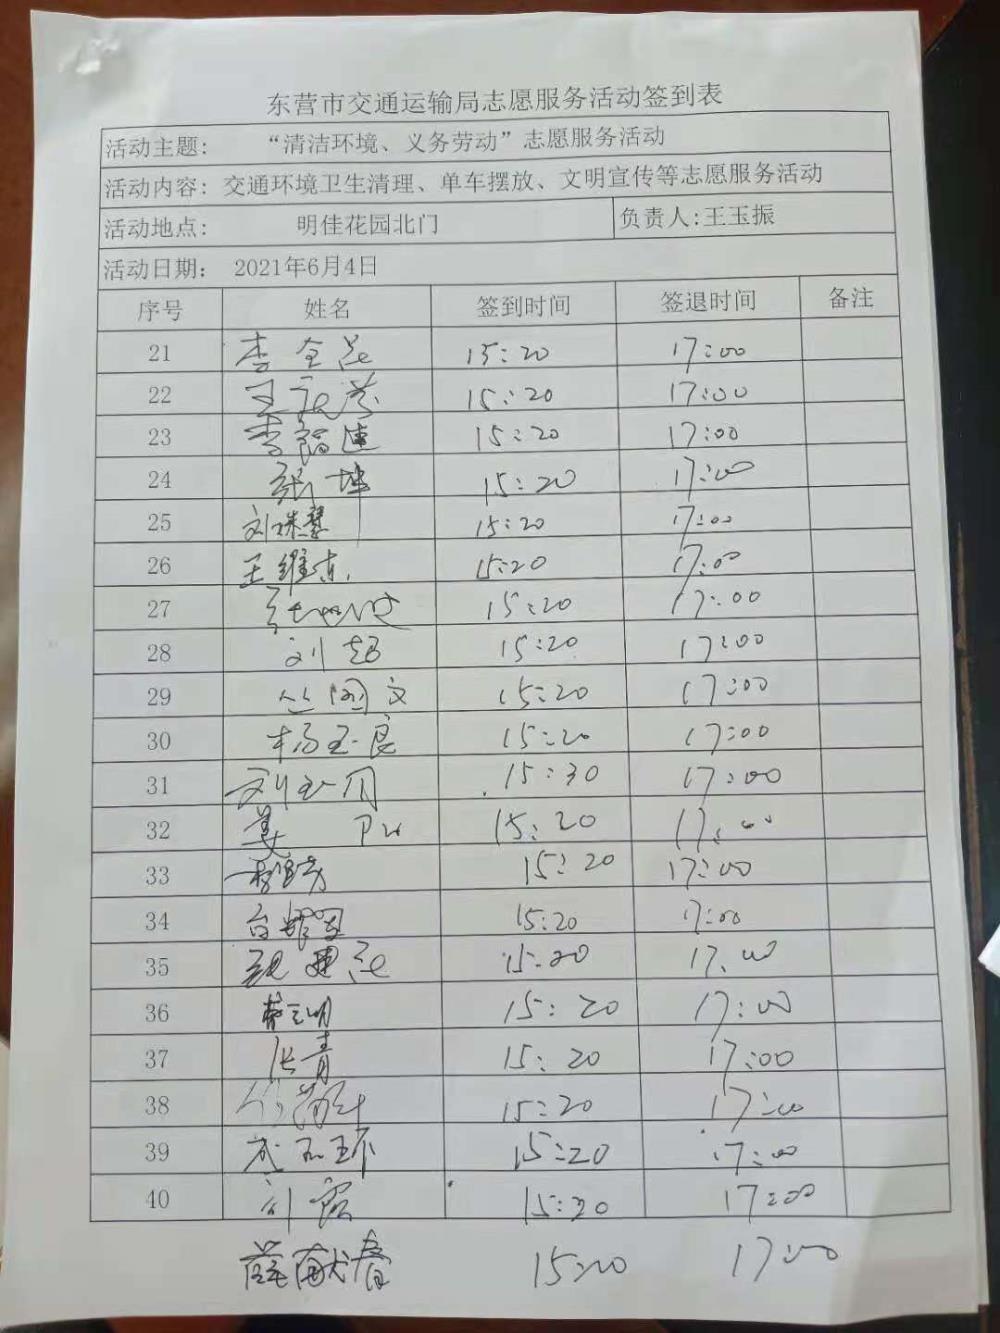 东营市交通运输局志愿服务活动签到表
活动主题: “清洁环境、义务劳动”志愿服务活动
活动内容: 交通环境卫生清理、单车摆放、文明宣传等志愿服务活动
活动地点: 明佳花园北门 负责人:王玉振
活动日期: 2021年6月4日
序号 姓名 签到时间 签退时间 备注
21 李全 15:20 17:00
22 王 15:20 17:00
23 李 15:20 17:00
24 张坤 15:20 17:00
25 刘珠慧 15:20 17:00
26 王维东 15:20 17:00
27 15:20 17:00
28 刘超 15:20 17:00
29 丛国文 15:20 17:00
30 杨玉良 15:20 17:00
31 刘玉 15:30 17:00
32 姜 15:20 17:00
33 15:20 17:00
34 15:20 17:00
35 15:20 17:00
36 15:20 17:00
37 张青 15:20 17:00
38 15:20 17:00
39 15:20 17:00
40 15:20 17:00
薛献春 15:20 17:00